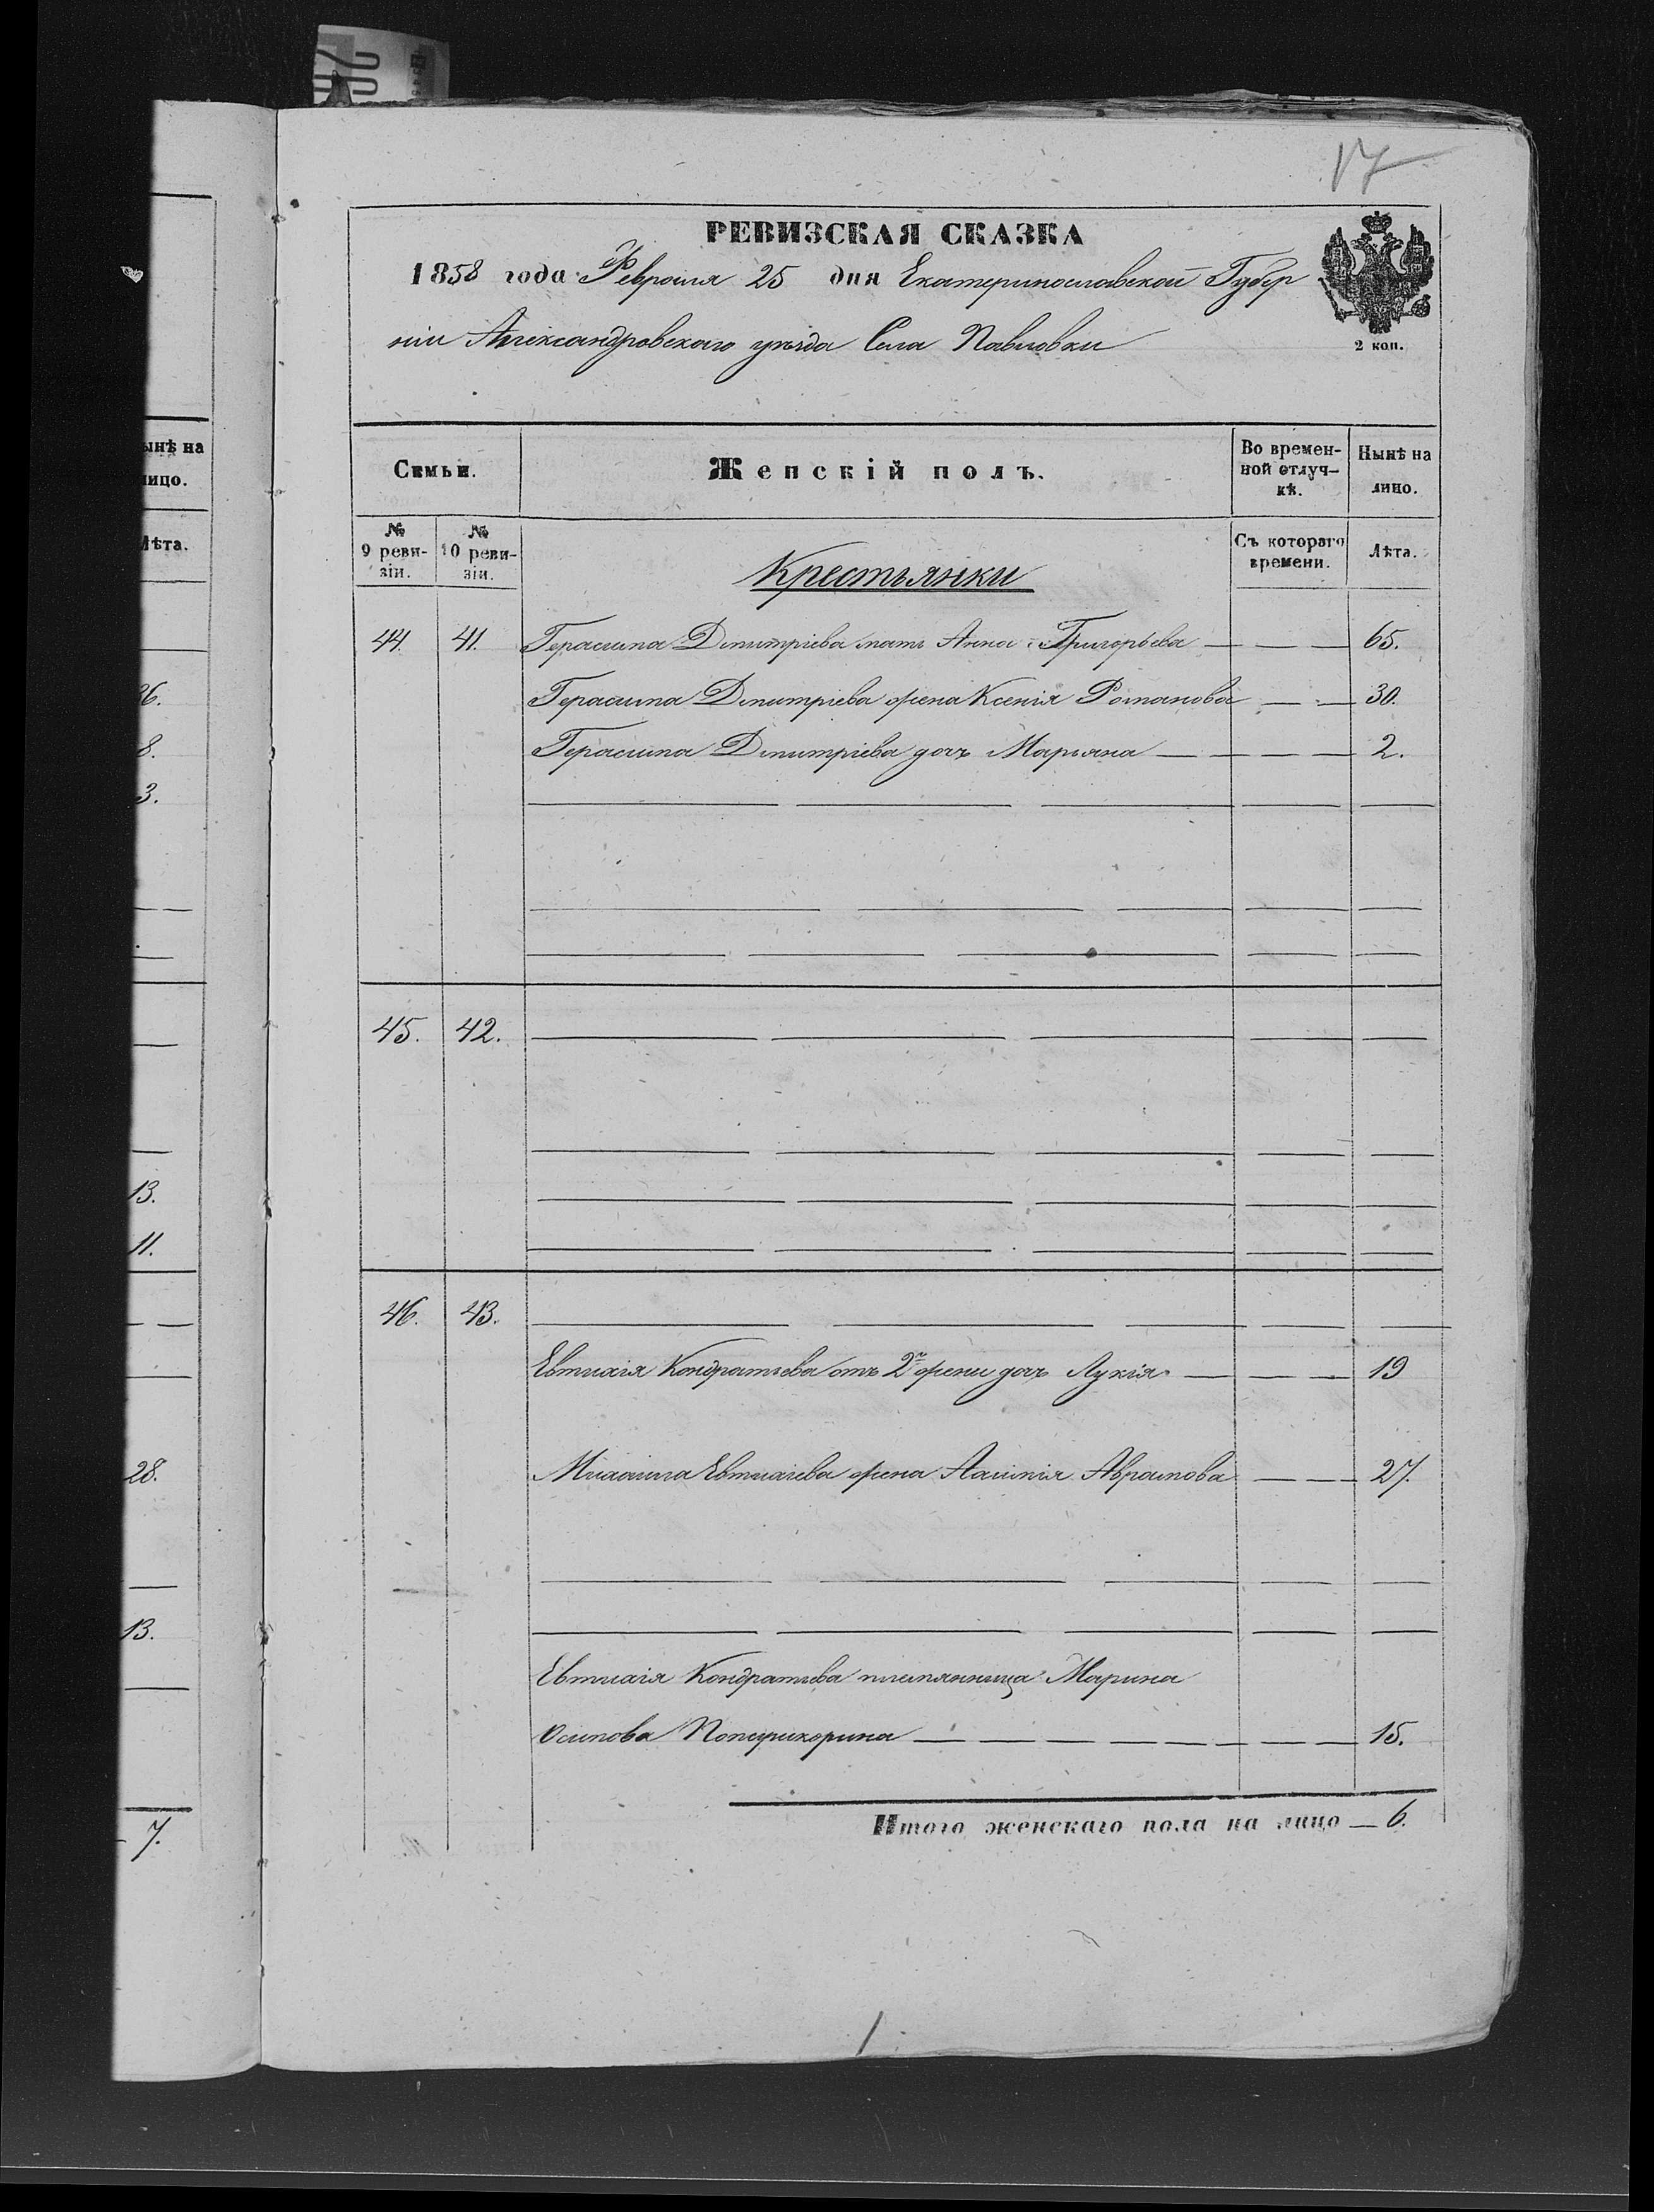 17
РЕВИЗСКАЯ СКАЗКА
1858 года Февраля 25 дня Екатеринославской Губер
ніи Александровскаго уѣзда Села Павловки
2 коп.
Семьи.
Женскій полъ.
Во времен-
ной отлуч-
кѣ.
Нынѣ на
лицо.
№
9 реви-
зіи.
№
10 реви-
зіи.
Крестьянки
Съ котораго
времени.
Лѣта.
44. 41. Герасима Дмитріева мать Анна Григорьева — — — 65.
Герасима Дмитріева жена Ксенія Романова — — 30.
Герасима Дмитріева дочь Марьяна — — — — 2.
45. 42.
46. 43.
Евтихія Кондратьева отъ 2й жены дочь Лукія — — — 19
Михаила Евтихіева жена Авраамова — — — 27.
Евтихія Кондратьева племянница Марина
Осипова — — — — — — — — — 15.
Итого женскаго пола на лицо — 6.
ынѣ на
лицо.
Лѣта.
36.
8.
3.
13.
11.
28.
13.
7.